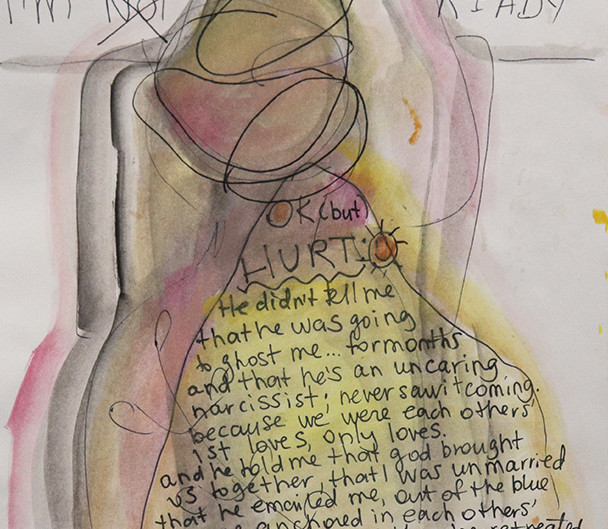 I'M NOT READY
OK (but)
HURT:
He didn't tell me
that he was going
to ghost me... for months
and that he's an uncaring
narcissist; never saw it coming.
because we were each others'
1st loves, only loves.
and he told me that god brought
us together, that I was unmarried
that he emailed me, out of the blue
anchored in each others'